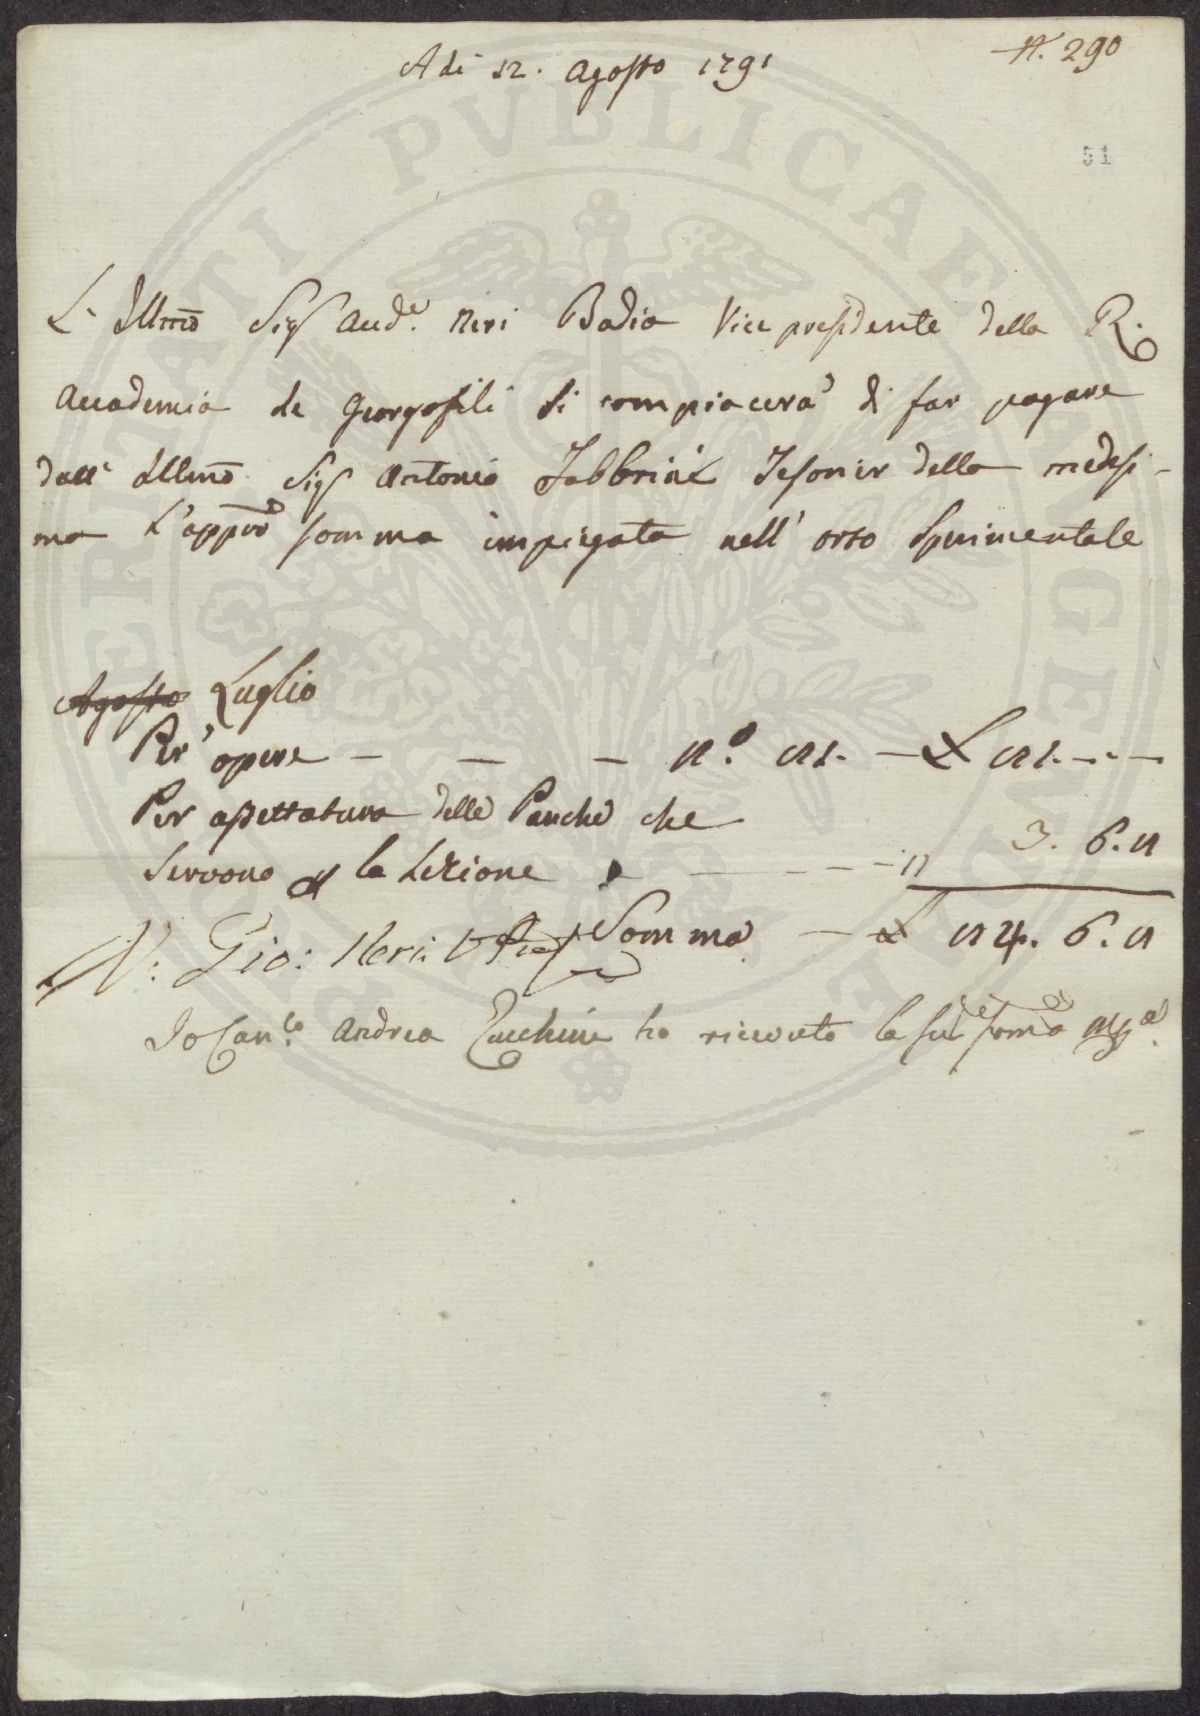 N. 290
Adi 12. Agosto 1791
51
L'Illmo Sig Aud.e Neri Badia Vice presidente della R.
Accademia de Georgofili si compiacerà di far pagare
dall' Illmo Sig Antonio Fabbrini Tesorier della medesi-
ma L'appiè somma impiegata nell' orto Sperimentale
Agosto Luglio
Per opere — — — n.o 21. — £ 21. - - —
Per assettatura delle Panche che
servono a la Lezione — — — " 3. 6. 8
Somma — £ 24. 6. 8
V: Gio: Neri V. Pres
Io Can.co Andrea Zucchini ho ricevuto la sud.e somma
SENATI PVBLICAE